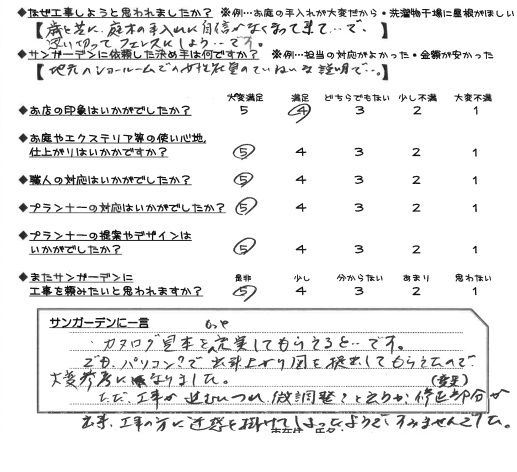 ◆なぜ工事しようと思われましたか？ ※例…お庭の手入れが大変だから・洗濯物干場に屋根がほしい
【歳と共に、庭木の手入れに自信がなくなって来て…で、
思い切ってフェンスにしよう…です。】
◆サンガーデンに依頼した決め手は何ですか？ ※例…担当の対応がよかった・金額が安かった
【地元のショールームでの女性社員のていねいな説明で…。】
大変満足 満足 どちらでもない 少し不満 大変不満
◆お店の印象はいかがでしたか？ 5 4 3 2 1
◆お庭やエクステリア等の使い心地、
仕上がりはいかかですか？ 5 4 3 2 1
◆職人の対応はいかがでしたか？ 5 4 3 2 1
◆プランナーの対応はいかがでしたか？ 5 4 3 2 1
◆プランナーの提案やデザインは
いかがでしたか？ 5 4 3 2 1
是非 少し 分からない あまり 思わない
◆またサンガーデンに
工事を頼みたいと思われますか？ 5 4 3 2 1
サンガーデンに一言
もっや
・カタログ見本を充実してもらえると…です。
でも、パソコン？で出来上がり図を提出してもらえたので、
大変参考になりました。
(変更)
ただ、工事が進むにつれ、微調整？と云うか、修正部分が
出来、工事の方に迷惑を掛けてしまったようで、すみませんでした。